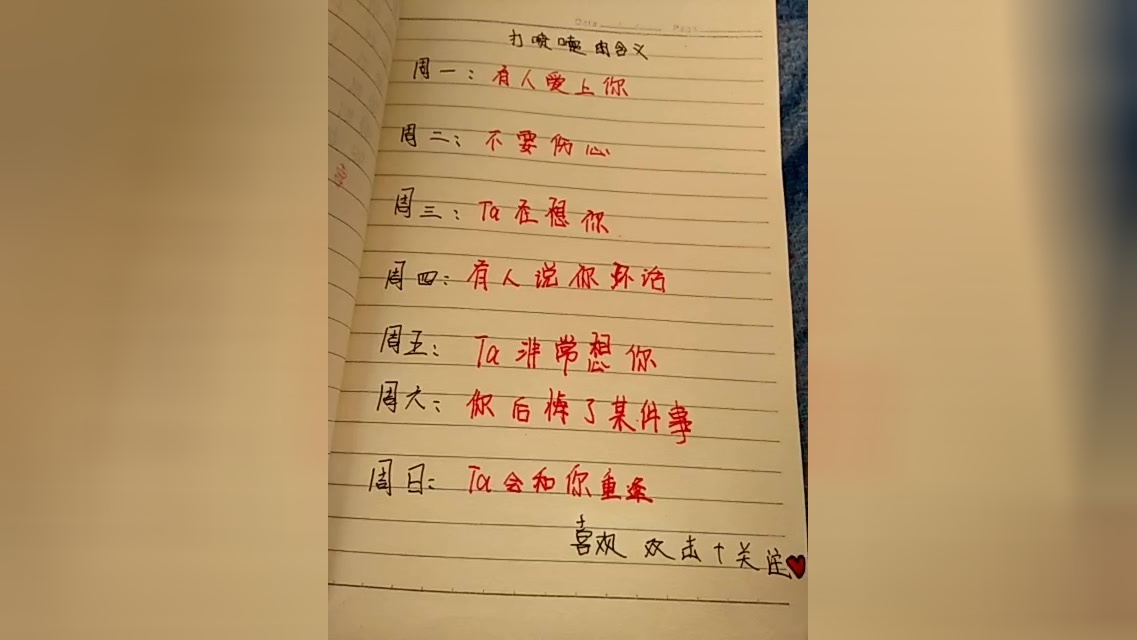 Date Page
打喷嚏的含义
周一：有人爱上你
周二：不要伤心
周三：Ta在想你
周四：有人说你坏话
周五：Ta非常想你
周六：你后悔了某件事
周日：Ta会和你重逢
喜欢 双击+关注